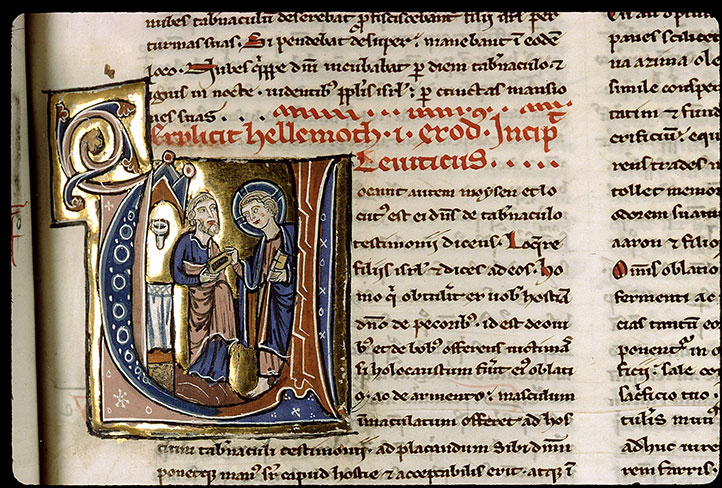 nubes tab̄naculū deserebat p̄ficiscebant̄ filii isrl̄ per
turmas suas. Si pendebat desuper: manebant ī eodē
loco. Nubes q̄ppe dn̄i incubabat per diem tab̄naculo ⁊
ignis in nocte. uidentib; ppl̄is isrl̄: p cunctas mansio
nes suas . . .
Explicit hellesmoth . i . exod . Incip
Leuiticus . . . .
ocauit autem moysen et lo
cut̉ est ei dn̄s de tab̄naculo
testimonii dicens. Loq̄re
filiis isrl̄ ⁊ dices ad eos. ho
mo q̄ obtul̄it ex uob̄ hostiā
dn̄o de pecorib; id est de oui
b; et de bob; offerens uictimas
si holocaustum fūit eỉ oblati
o. ac de armento: masculum
īmaculatum offeret ad hos
tium tab̄naculi testimonii. ad placandum sibi dn̄m
ponetq̄ man̉ sr̄ capud hostie ⁊ acceptabilis erit. atq̄ ī
panes scilicet
simile conspers
rens trades m
tollet memor
odorem suaui
aaron ⁊ filio
Omis oblatio
fermenti ac
ponent̄ in
ficii: sale co
sac̄ficio tuo.
adhuc uire
rem farris.